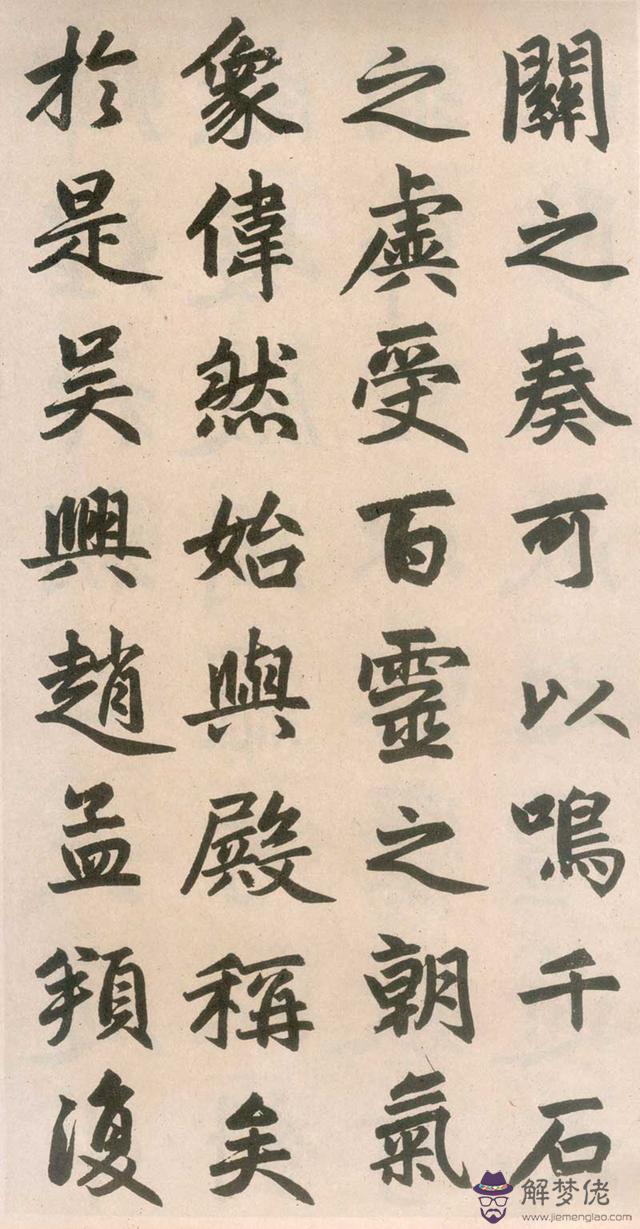 關之奏可以鳴千石
之虡受百靈之朝氣
象偉然始與殿稱矣
於是吳興趙孟頫復
解梦佬
www.jiemenglao.com